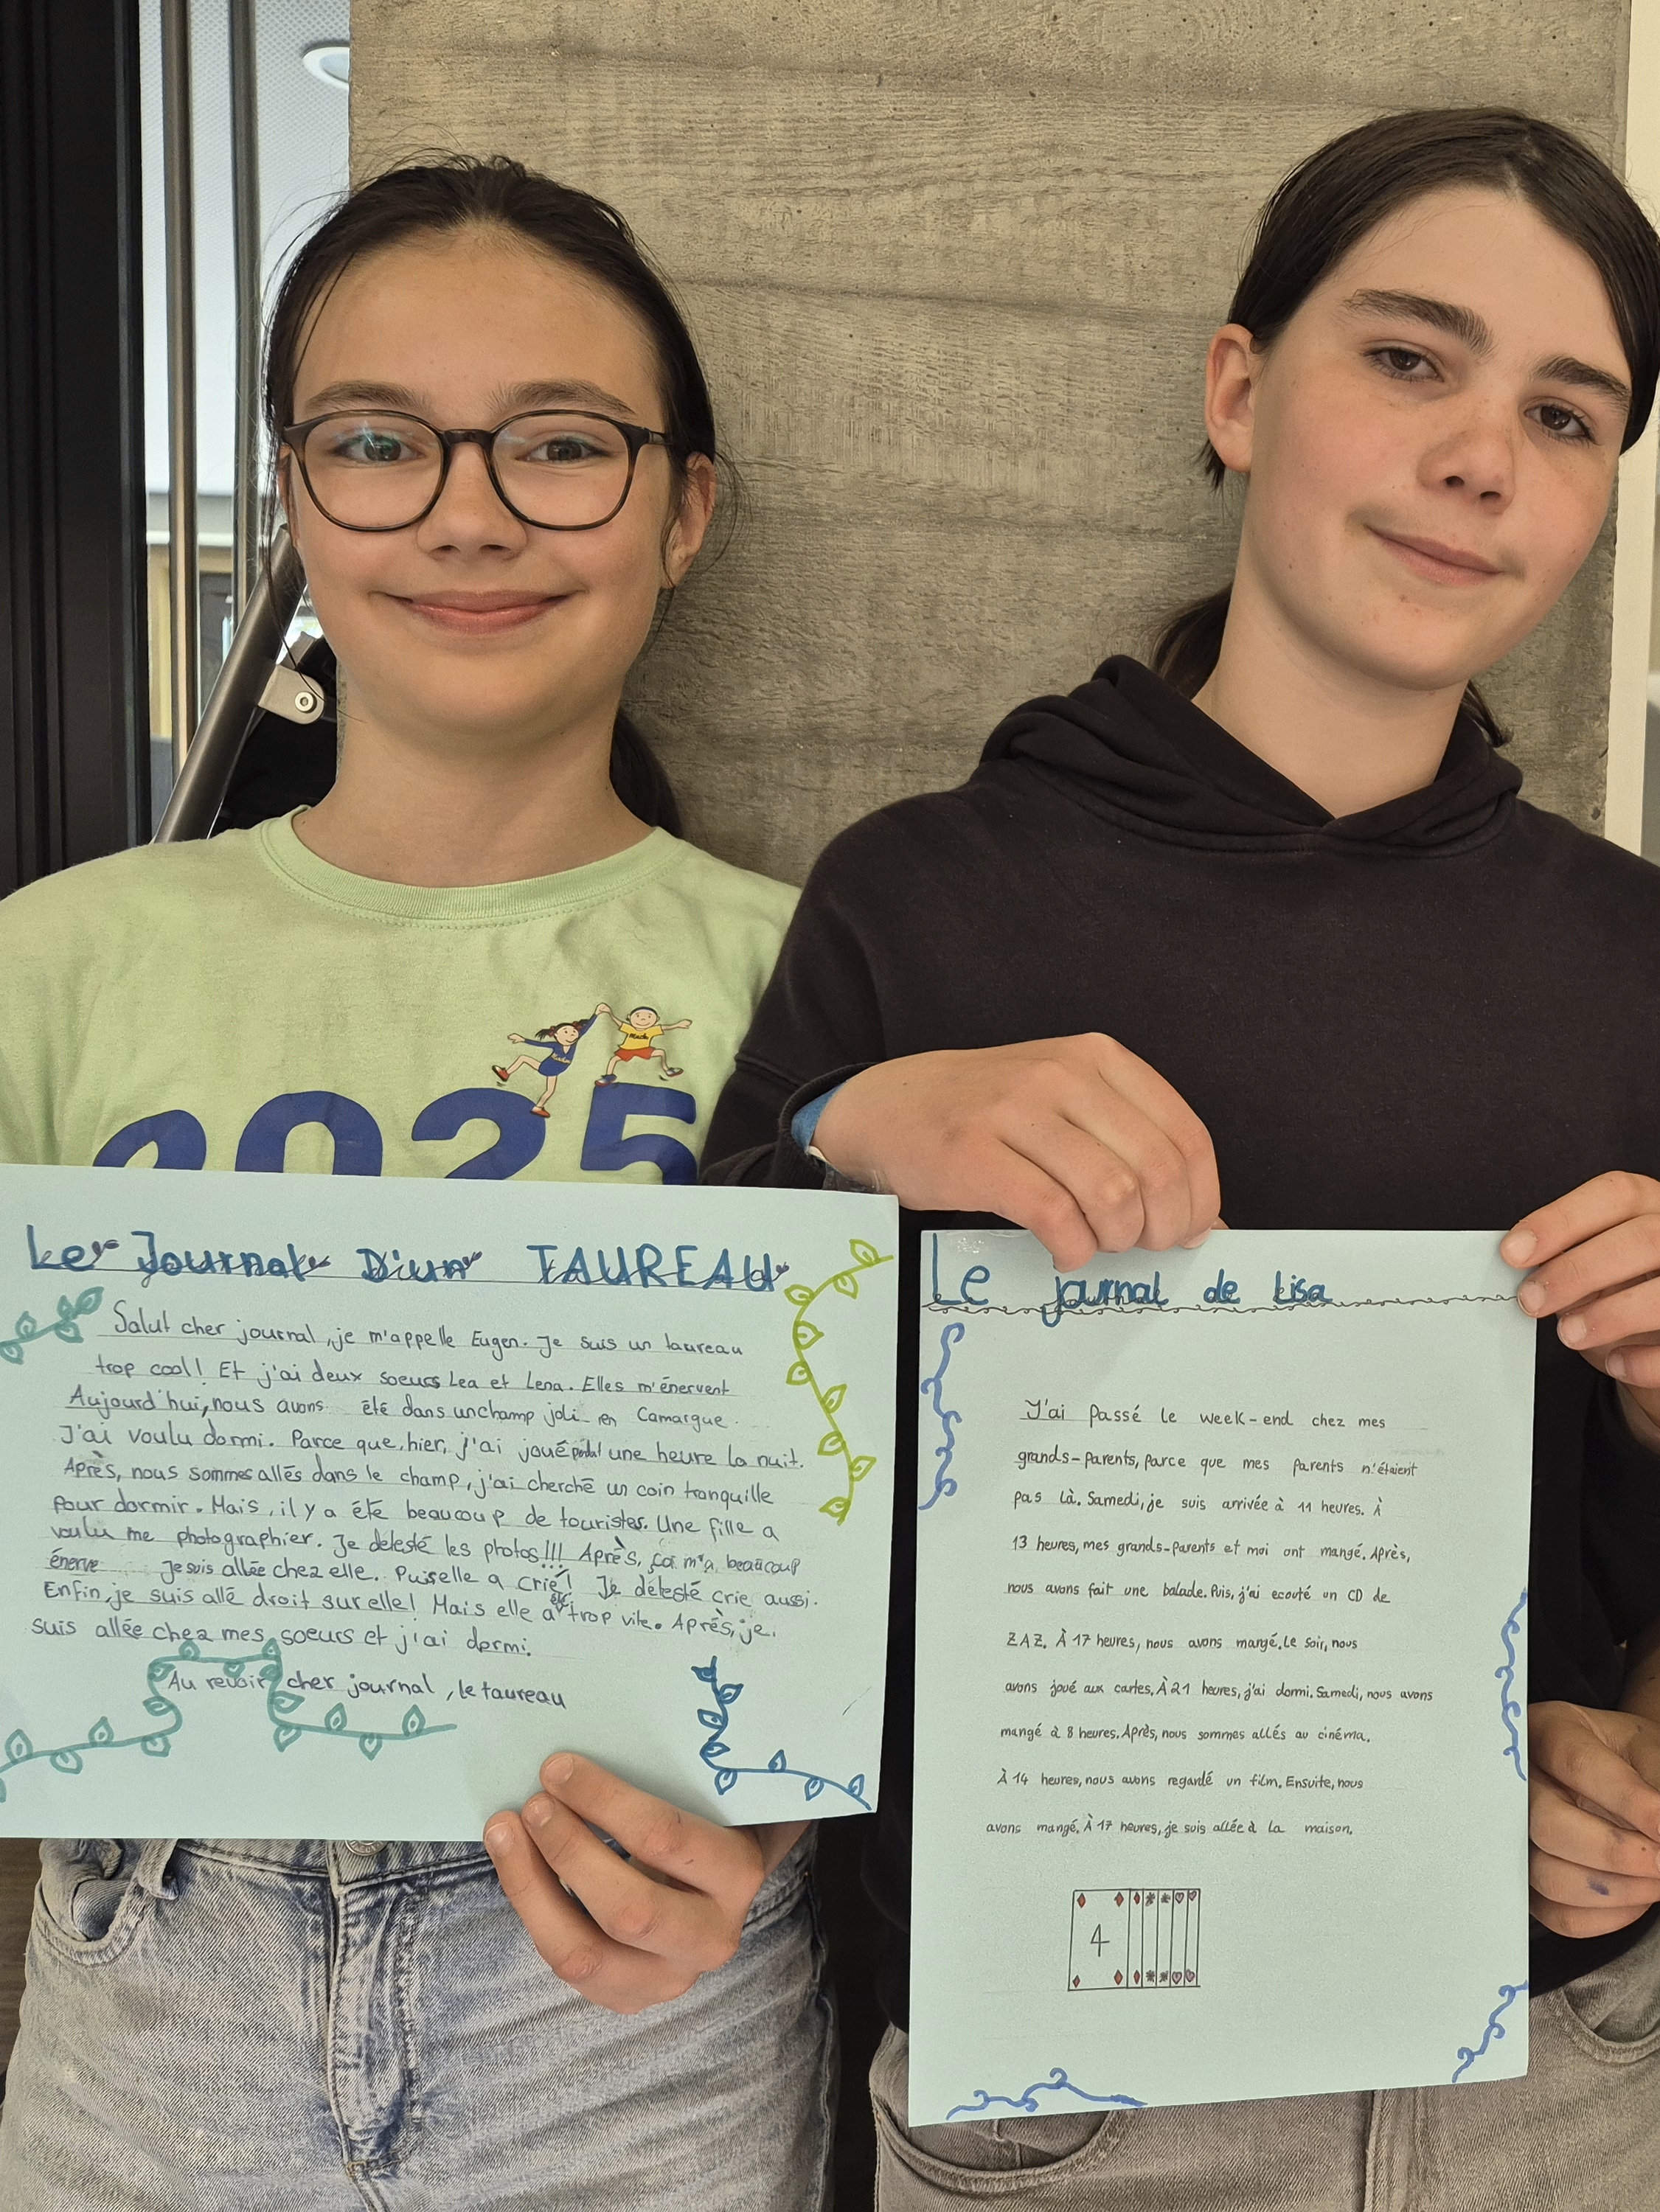 2025
Le Journal D'un TAUREAU
Salut cher journal, je m'appelle Eugen. Je suis un taureau
trop cool! Et j'ai deux soeurs Lea et Lena. Elles m'énervent
Aujourd'hui, nous avons été dans un champ joli en Camargue.
J'ai voulu dormi. Parce que, hier, j'ai joué une heure la nuit.
Après, nous sommes allés dans le champ, j'ai cherché un coin tranquille
pour dormir. Mais, il y a été beaucoup de touristes. Une fille a
voulu me photographier. Je detesté les photos!!! Après, ça m'a beaucoup
énerve Je suis allée chez elle. Puis elle a crié! Je detesté crie aussi.
Enfin, je suis allé droit sur elle! Mais elle a été trop vite. Après, je
suis allée chez mes soeurs et j'ai dormi.
Au revoir cher journal, le taureau
Le journal de Lisa
J'ai passé le week-end chez mes
grands-parents, parce que mes parents n'étaient
pas là. Samedi, je suis arrivée à 11 heures. À
13 heures, mes grands-parents et moi ont mangé. Après,
nous avons fait une balade. Puis, j'ai ecouté un CD de
ZAZ. À 17 heures, nous avons mangé. Le soir, nous
avons joué aux cartes. À 21 heures, j'ai dormi. Samedi, nous avons
mangé à 8 heures. Après, nous sommes allés au cinéma.
À 14 heures, nous avons regardé un film. Ensuite, nous
avons mangé. À 17 heures, je suis allée à la maison.
4